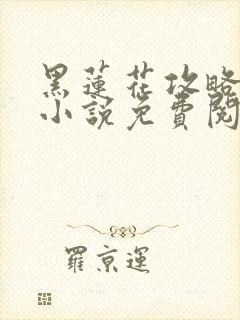 黑蓮花攻略
小說免費閱
羅京運